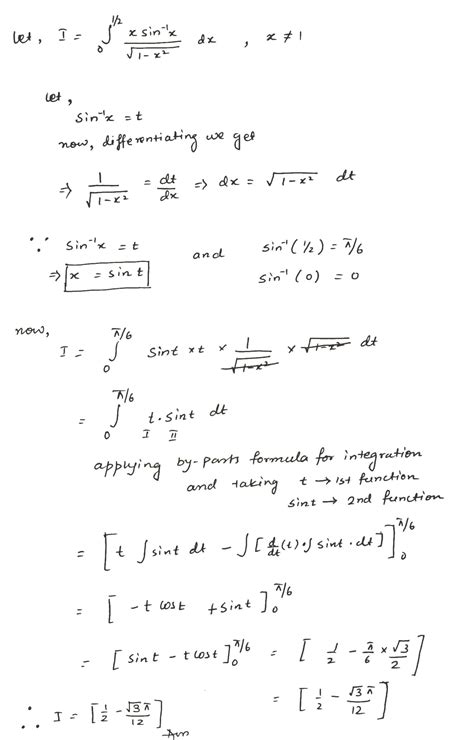 Let, I = ∫₀^{1/2} x sin⁻¹x / √(1-x²) dx , x ≠ 1
let,
sin⁻¹x = t
now, differentiating we get
⇒ 1/√(1-x²) = dt/dx ⇒ dx = √(1-x²) dt
∵ sin⁻¹x = t and sin⁻¹(1/2) = π/6
⇒ x = sin t sin⁻¹(0) = 0
now,
I = ∫₀^{π/6} sint × t × 1/√(1-x²) × √(1-x²) dt
= ∫₀^{π/6} t · sint dt
I II
applying by-parts formula for integration
and taking t → 1st function
sint → 2nd function
= [t ∫ sint dt - ∫[d/dt(t)·∫ sint · dt]]₀^{π/6}
= [-t cost + sint]₀^{π/6}
= [sint - t cost]₀^{π/6} = [1/2 - π/6 × √3/2]
= [1/2 - √3π/12]
∴ I = [1/2 - √3π/12] Ans